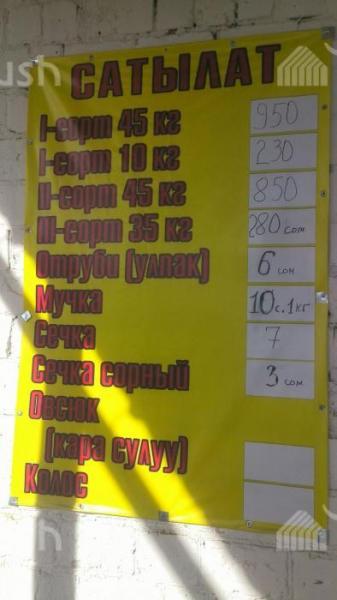 ush
САТЫЛАТ
I-сорт 45 кг 950
I-сорт 10 кг 230
II-сорт 45 кг 850
III-сорт 35 кг 280 сом
Отруби (улпак) 6 сом
Мучка 10 с. 1 кг
Сечка 7
Сечка сорный 3 сом
Овсюк
(кара сулуу)
Колос
ush